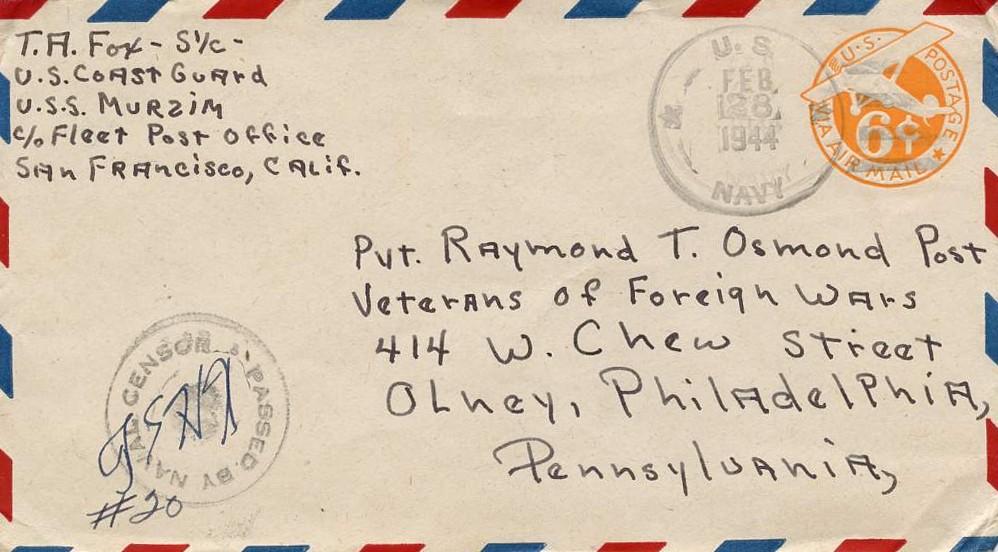 T.A. Fox - S1/c -
U.S. Coast Guard
U.S.S. Murzim
c/o Fleet Post Office
San Francisco, Calif.
U.S.
FEB
28
1944
NAVY
U.S. POSTAGE
6¢
VIA AIR MAIL
Pvt. Raymond T. Osmond Post
Veterans of Foreign Wars
414 W. Chew Street
Olney, Philadelphia,
Pennsylvania,
PASSED BY NAVAL CENSOR
#20